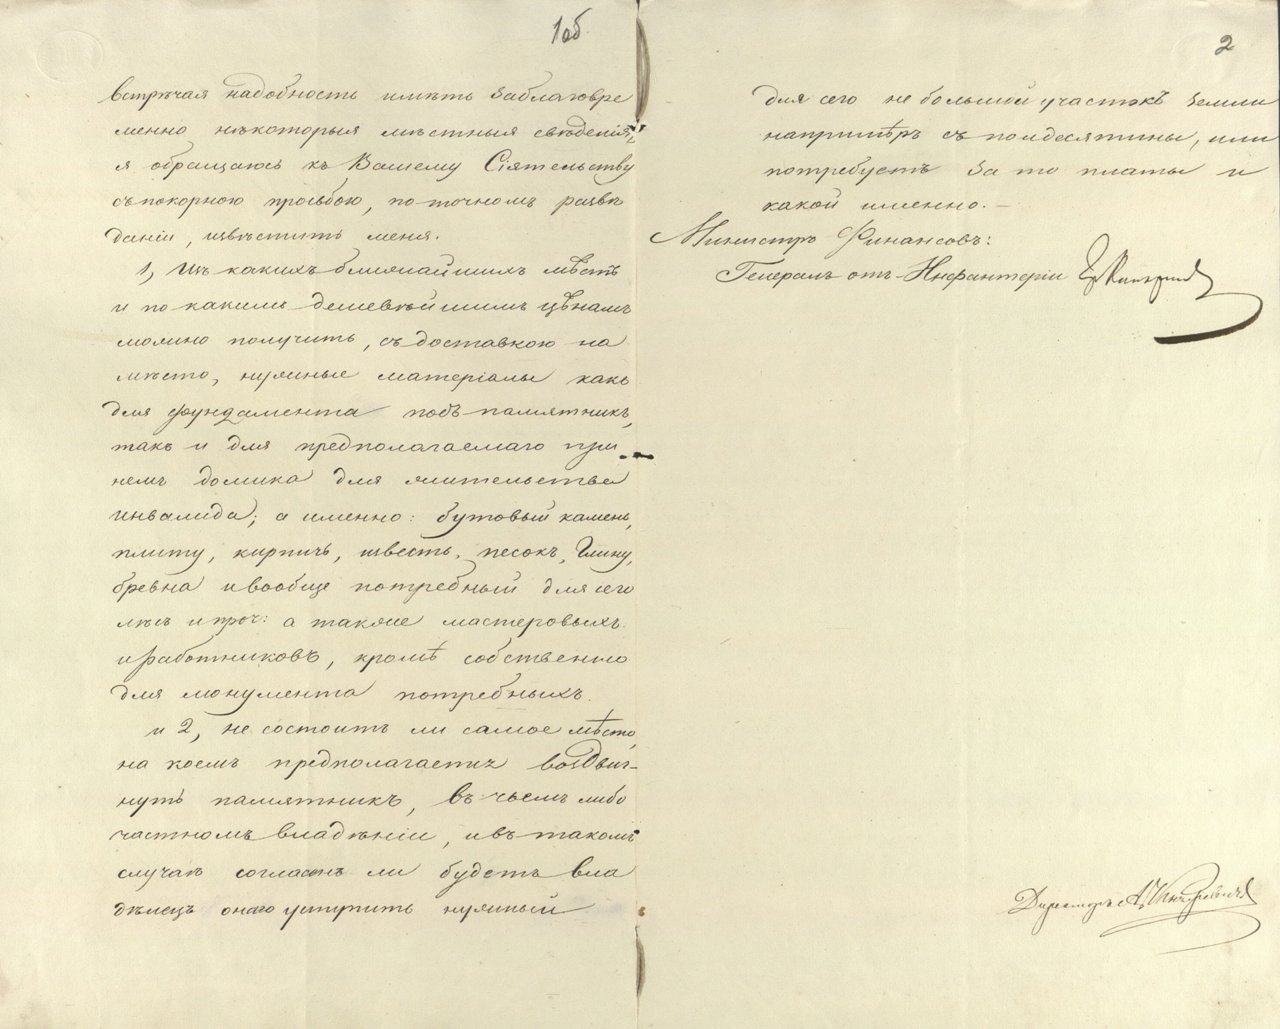 1об
встрѣчая надобность имѣть заблаговре
менно нѣкоторыя мѣстныя свѣденія,
я обращаюсь къ Вашему Сіятельству
съ покорною просьбою, по точномъ развѣ
даніи, извѣстить меня.
1, Изъ какихъ ближайшихъ мѣстъ
и по какимъ дешевѣйшимъ цѣнамъ
можно получить, съ доставкою на
мѣсто, нужные матеріалы какъ
для фундамента подъ памятникъ,
такъ и для предполагаемаго при
немъ домика для жительства
инвалида; а именно: бутовый камень,
плиту, кирпичъ, известь, песокъ, глину,
бревна и вообще потребный для сего
лѣсъ и проч: а также мастеровыхъ
и работниковъ, кромѣ собственно
для монумента потребныхъ.
и 2, не состоитъ ли самое мѣсто,
на коемъ предполагается воздвиг-
нуть памятникъ, въ чьемъ либо
частномъ владѣніи, и въ такомъ
случаѣ согласенъ ли будетъ вла
дѣлецъ онаго уступить нужный
2
для сего не большой участокъ земли
напримѣръ съ полдесятины, или
потребуетъ за то платы и
какой именно. —
Министръ Финансовъ:
Генералъ отъ Инфантеріи Гр Канкринъ
Директоръ А.